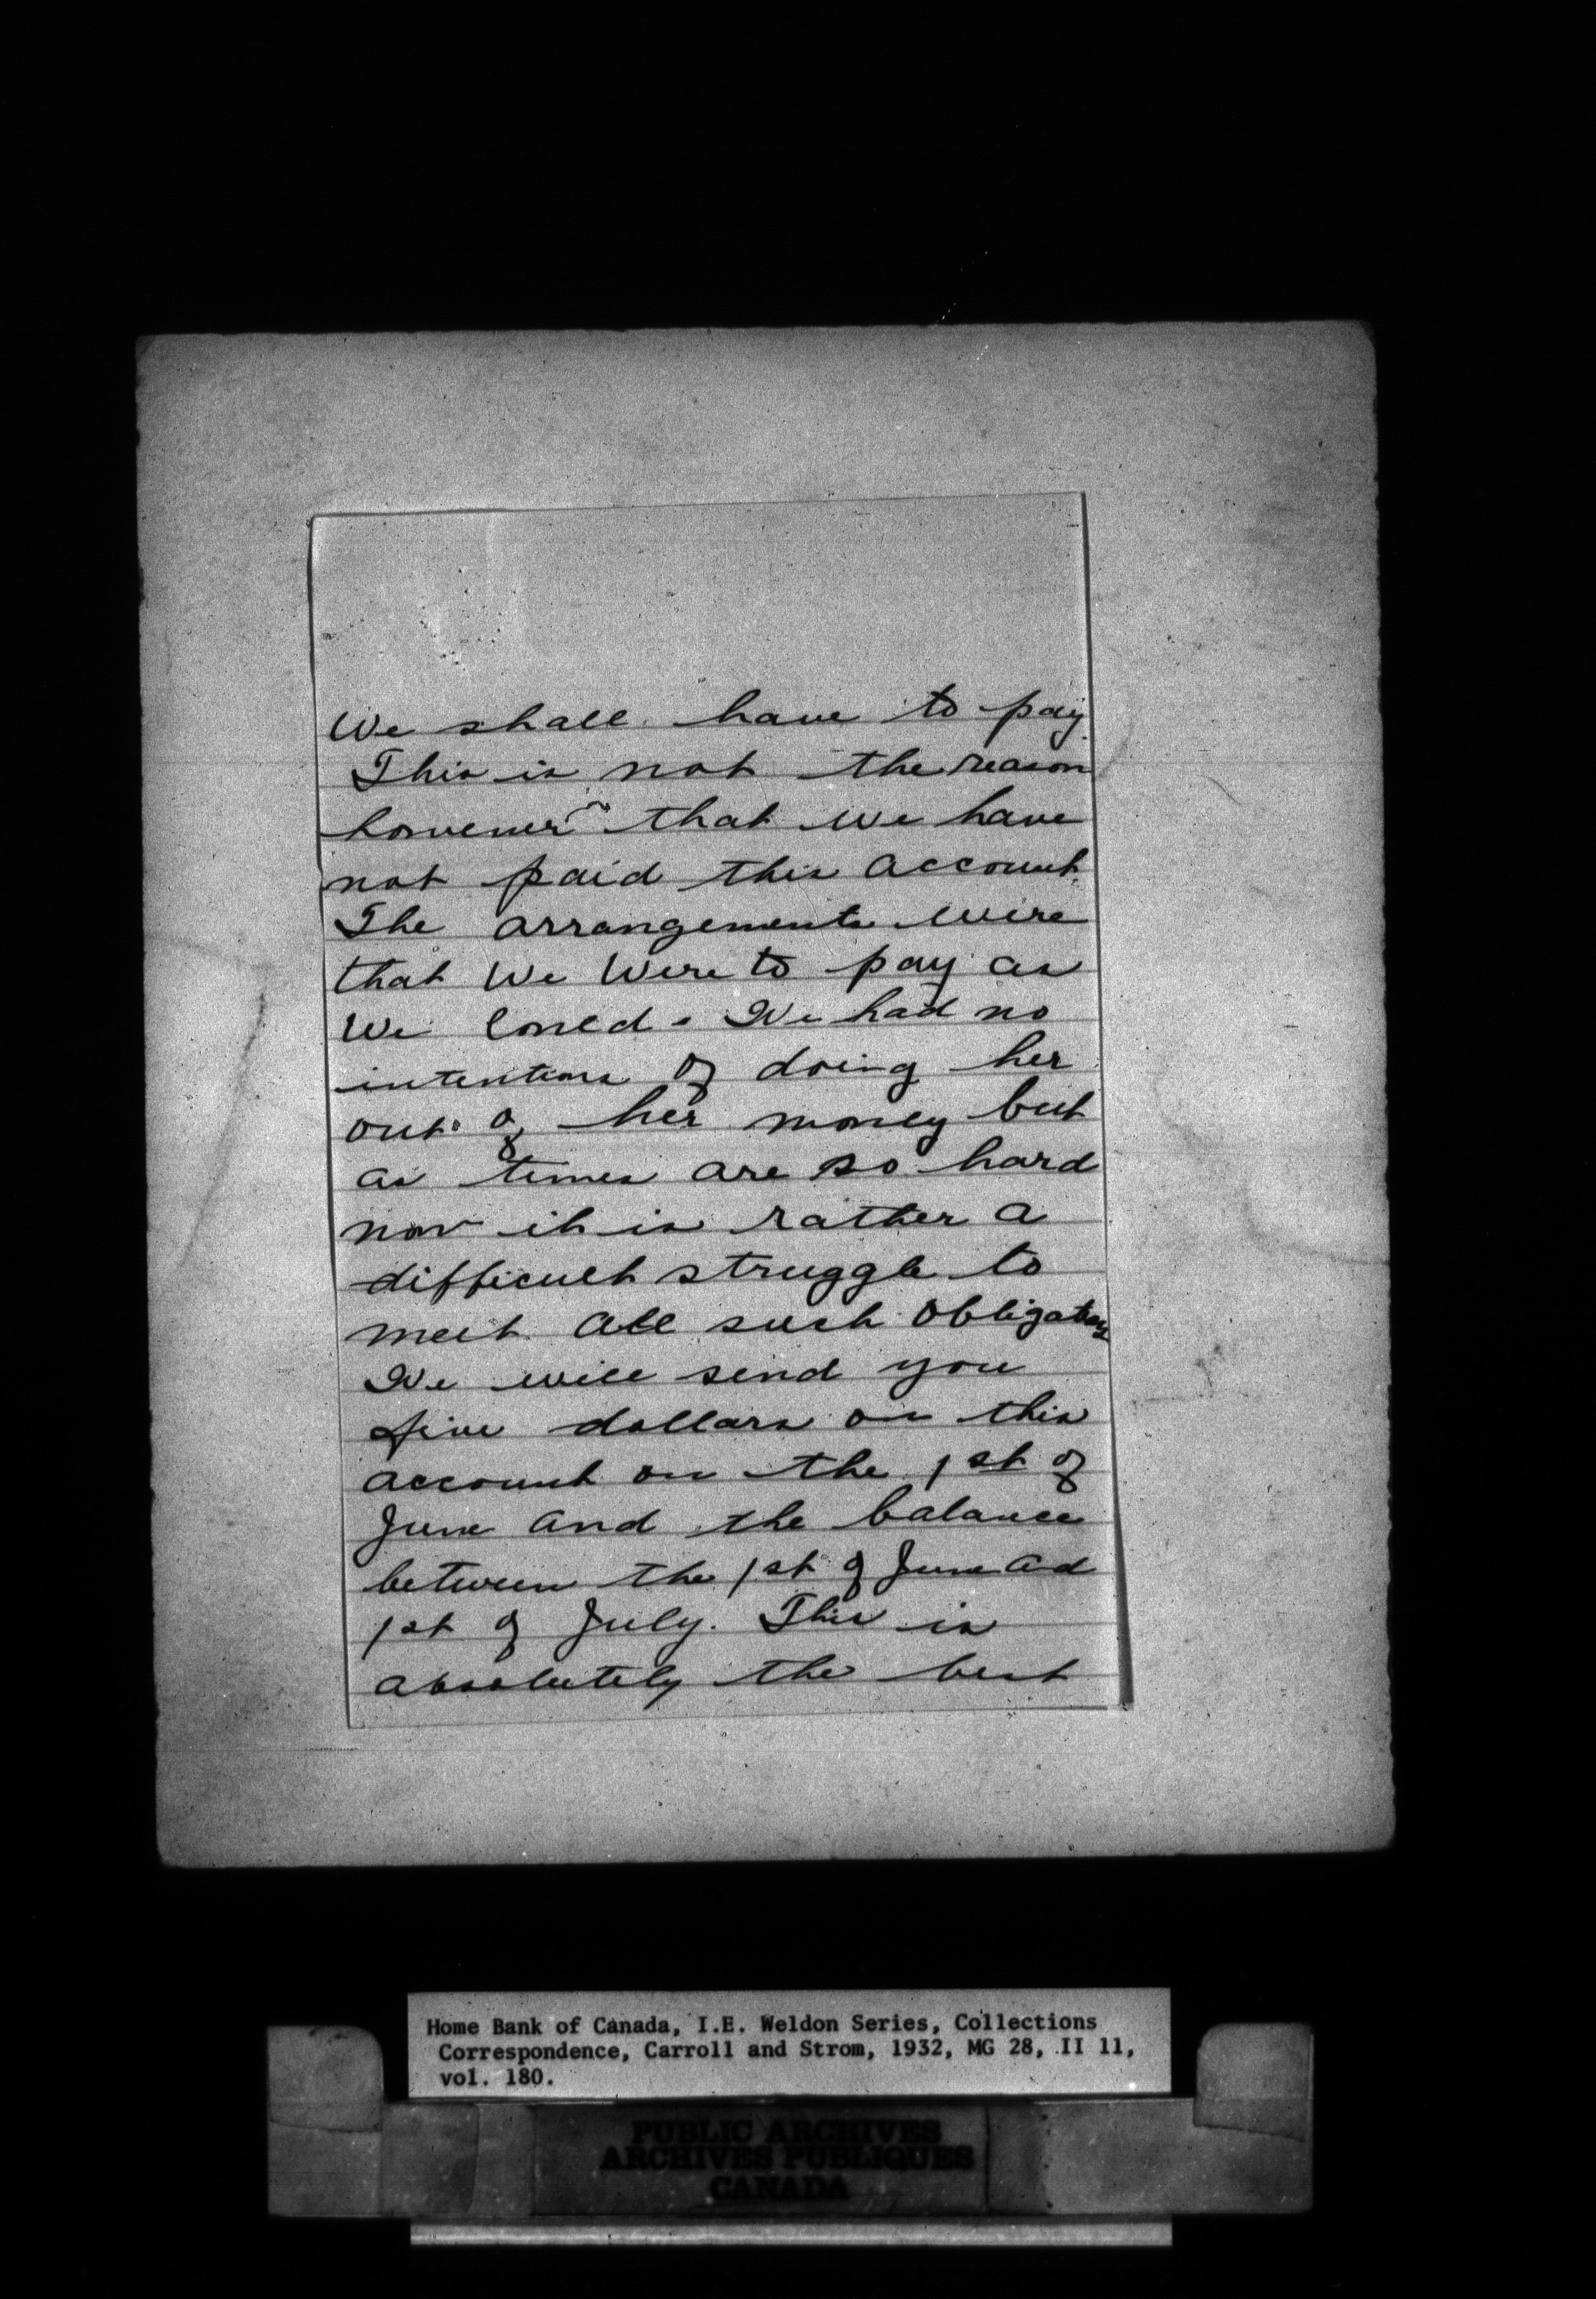 We shall have to pay.
This is not the reason
however that we have
not paid this account.
The arrangements were
that we were to pay as
we could. We had no
intentions of doing her
out of her money but
as times are so hard
now it is rather a
difficult struggle to
meet all such obligations
We will send you
five dollars on this
account on the 1st of
June and the balance
between the 1st of June ad
1st of July. This is
absolutely the best
Home Bank of Canada, I.E. Weldon Series, Collections
Correspondence, Carroll and Strom, 1932, MG 28, II 11,
vol. 180.
PUBLIC ARCHIVES
ARCHIVES PUBLIQUES
CANADA